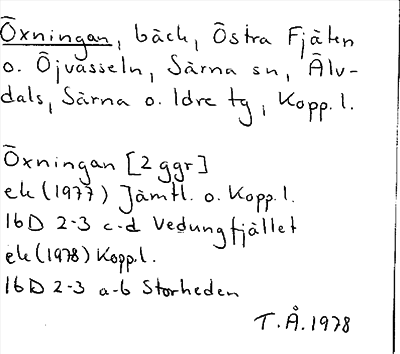 Öxningan, bäck, Östra Fjäten
o. Öjvasseln, Särna sn, Älv-
dals, Särna o. Idre tg, Kopp. l.
Öxningan [2 ggr]
ek (1977) Jämtl. o. Kopp. l.
16D 2-3 c-d Vedungfjället
ek (1978) Kopp. l.
16D 2-3 a-b Storheden
T.Å. 1978